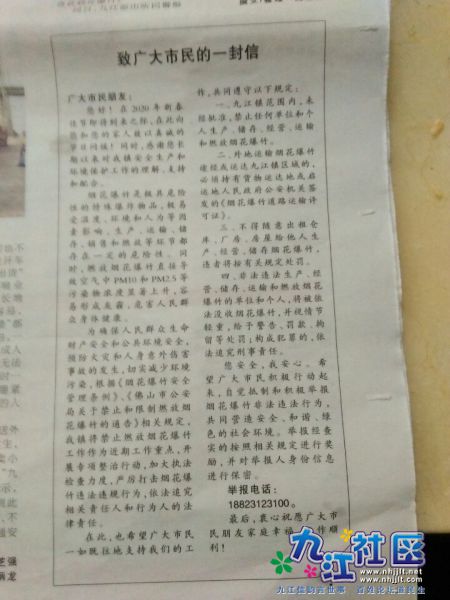 致广大市民的一封信
广大市民朋友：
您好！在2020年新春
佳节即将到来之际，在此向
您和您的家人致以真诚的
节日问候！同时，感谢您长
期以来对我镇安全生产和
环境保护工作的理解、支持
和配合。
烟花爆竹是极具危险
性的特殊爆炸物品，极易
受温度、环境和人为等因
素影响，生产、运输、储
存、销售和燃放等环节都
存在一定的危险性。同
时，燃放烟花爆竹直接导
致空气中PM10和PM2.5等
污染物浓度显著上升，容
易形成灰霾，危害人民群
众身体健康。
为确保人民群众生命
财产安全和公共环境安全，
预防火灾和人身意外伤害
事故的发生，切实减少环境
污染，根据《烟花爆竹安全
管理条例》、《佛山市公安
局关于禁止和限制燃放烟
花爆竹的通告》相关规定，
我镇将禁止燃放烟花爆竹
工作作为近期工作重点，开
展专项整治行动，加大执法
检查力度，严厉打击烟花爆
竹违法违规行为，依法追究
相关责任人和行为人的法
律责任。
在此，也希望广大市民
一如既往地支持我们的工
作，共同遵守以下规定：
一、九江镇范围内，未
经批准，禁止任何单位和个
人生产、储存、经营、运输
和燃放烟花爆竹。
二、外地运输烟花爆竹
途经或运达九江镇区域的，
必须持有货物运达地或启
运地人民政府公安机关签
发的《烟花爆竹道路运输许
可证》。
三、不得随意出租仓
库、厂房、房屋给他人生
产、经营、储存烟花爆竹，
违者将按有关规定处罚。
四、非法违法生产、经
营、储存、运输和燃放烟花
爆竹的单位和个人，将被依
法没收烟花爆竹，并视情节
轻重，给予警告、罚款、拘
留等处罚；构成犯罪的，依
法追究刑事责任。
您安全，我安心。希
望广大市民积极行动起
来，自觉抵制和积极举报
烟花爆竹非法违法行为，
共同营造安全、和谐、绿
色的社会环境。举报经查
实的按照相关规定进行奖
励，并对举报人身份信息
进行保密。
举报电话：
18823123100。
最后，衷心祝愿广大市
民朋友家庭幸福、工作顺
利！
九江社区
www.nhjjlt.net